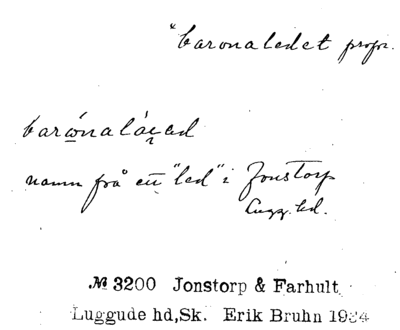 "baronaledet propr.
barωnaláęad
namn från ett "led" i Jonstorp
Lugg. hd.
№ 3200 Jonstorp & Farhult
Luggude hd, Sk. Erik Bruhn 1934